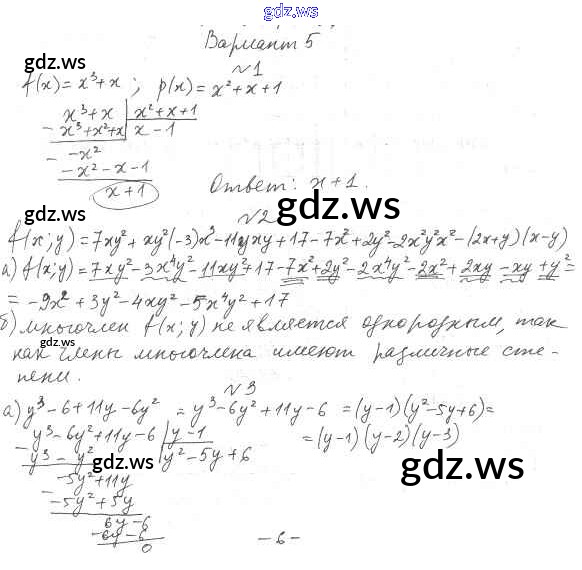 gdz.ws
Вариант 5
gdz.ws
№1
f(x) = x³+x ; p(x) = x²+x+1
x³+x | x²+x+1
- x³+x²+x | x-1
- -x²
-x²-x-1
x+1
Ответ: x+1.
gdz.ws
№2
f(x;y) = 7xy²+xy²(-3)x³-11yxy+17-7x²+2y²-2x²y²x²-(2x+y)(x-y)
а) f(x;y) = 7xy²-3x⁴y²-11xy²+17-7x²+2y²-2x⁴y²-2x²+2xy-xy+y²=
= -9x²+3y²-4xy²-5x⁴y²+17
б) многочлен f(x;y) не является однородным, так
как члены многочлена имеют различные сте-
gdz.ws
пени.
№3
gdz.ws
а) y³-6+11y-6y² = y³-6y²+11y-6 = (y-1)(y²-5y+6)=
- y³-6y²+11y-6 | y-1
= (y-1)(y-2)(y-3)
y³-y² | y²-5y+6
- -5y²+11y
-5y²+5y
gdz.ws
- 6y-6
6y-6
0
-6-
gdz.ws
gdz.ws